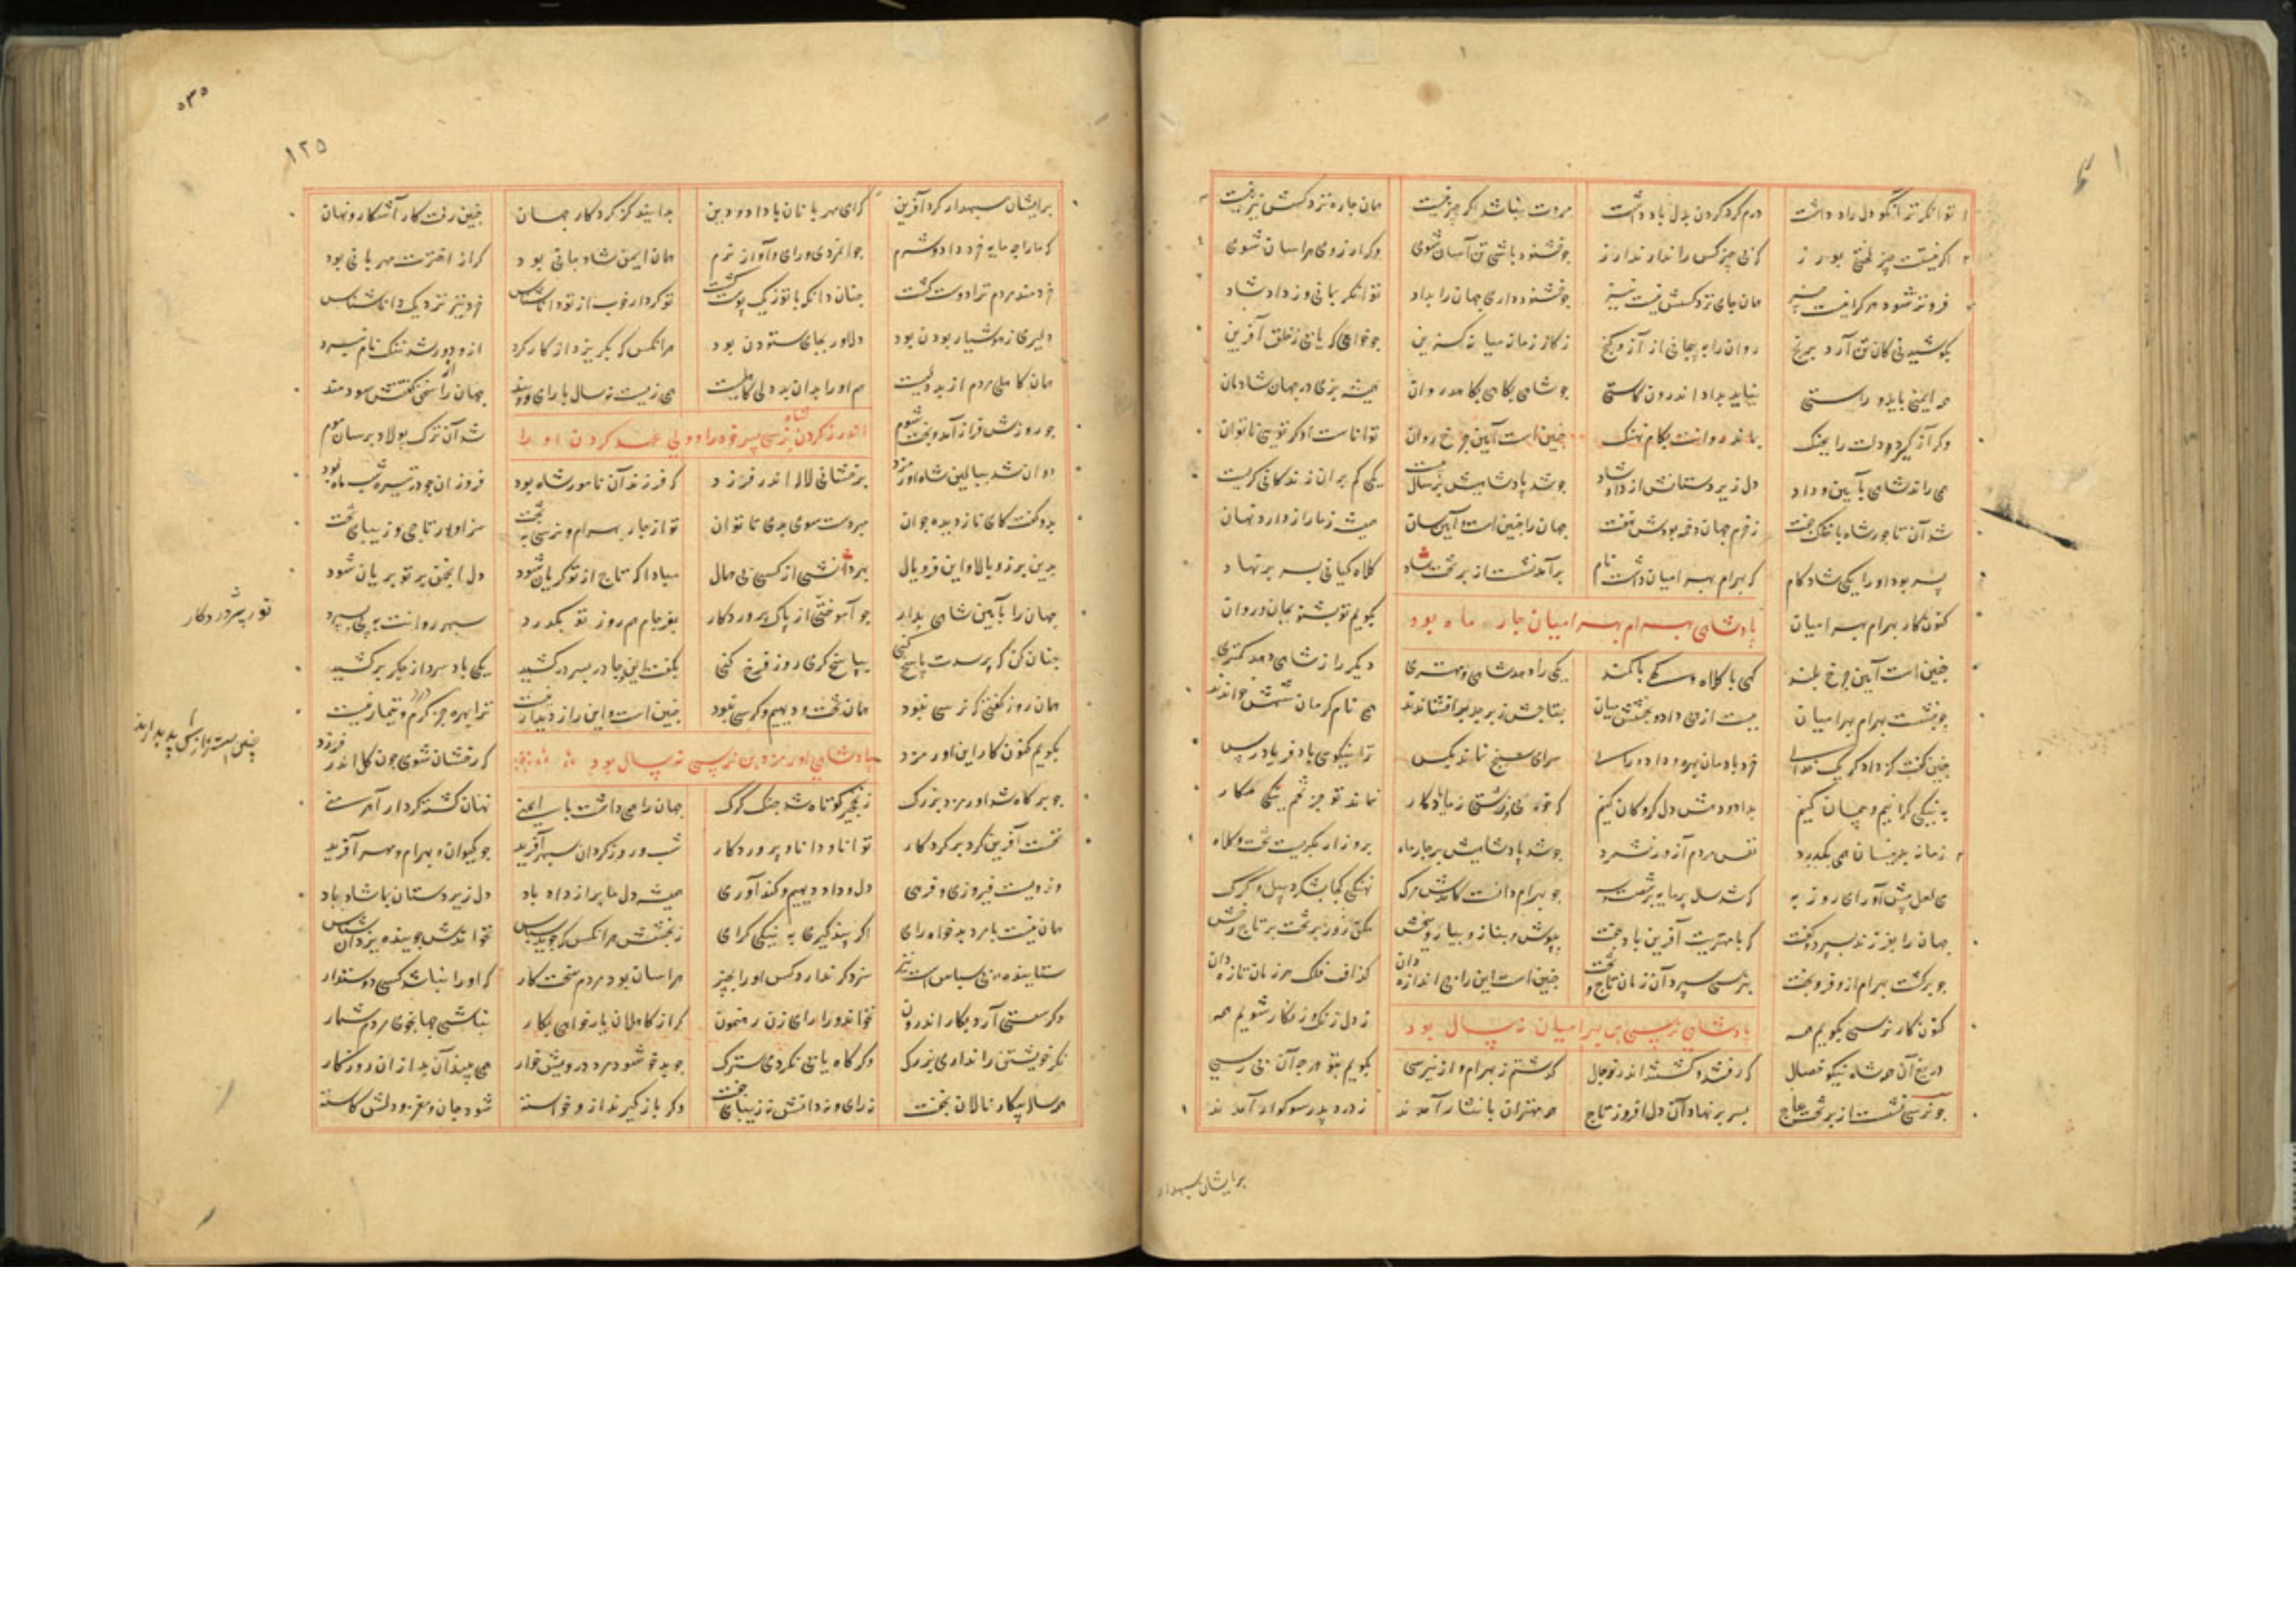 توانگرتر آنکو دل راد داشت درم گرد کردن بدل باد داشت مروت نباشد اگر چیز نیست همان جاه نزد کسش نیز نیست
چو خشنود باشی تن آسان شوی وگر آز روی هراسان شوی
فروتر شود هر کرا نیست همان جای نزد کسش نیست نیز چو خشنود داری جهان را بداد توانگر بمانی و از داد شاد
بکوشیدنی کان تن آرد برنج روان را به پیچانی از آز و گنج ز کار زمانه میانه گزین چو خواهی که یابی ز خلق آفرین
همه ایمنی باید و راستی نباید بداد اندرون کاستی چو شاهی بکامی بکاهد روان همیشه بزی در جهان شادمان
وگر آز گیرد دلت را بچنگ بماند روانت بکام نهنگ چنین است آیین چرخ روان توانا ست او گر تویی ناتوان
همی راند شاهی بآیین و داد دل زیردستان از داد شاد چو شد پادشاهیش بر سال بیست یکی کم بر آن زندگانی گریست
شد آن تاجور شاه با خاک جفت ز خرم جهان دخمه بودش نهفت جهان را چنین است آیین و سان همیشه ز ما راز دارد نهان
پسر بود او را یکی شادکام که بهرام بهرامیان داشت نام برآمد نشست از بر تخت شاد کلاه کیانی بسر بر نهاد
کنون کار بهرام بهرامیان بگویم تو بشنو بجان و روان
پادشاهی بهرام بهرامیان چار ماه بود
چنین است آیین چرخ بلند گهی با کلاه و گهی با کمند یکی راه دهد شاهی و مهتری دیگر را ز شاهی دهد کمتری
چو بنشست بهرام بهرامیان ببست از پی داد و بخشش میان بتاجش زبرجد برافشاندند همی نام کرمان شهش خواندند
چنین گفت کز دادگر یک خدای خرد بادمان بهره و داد و رای سرای سپنج نماند بکس ترا نیکوی باد فریادرس
به نیکی گراییم و پیمان کنیم بداد و دهش دل گروگان کنیم که خوبی و زشتی ز ما یادگار بماند تو جز تخم نیکی مکار
چو شد پادشاهیش بر چار ماه برو زار بگریست تخت و کلاه
چو بهرام دانست کامدش مرگ نهنگی کجا بشکرد پیل و کرگ
جهان را بفرزند بسپرد و گفت که با مهترت آفرین باد جفت بپوش و بناز و بیاز و ببخش
چو برگشت بهرام از و فر و بخت بنرسی سپرد آن زمان تاج و تخت چنین است این را بی اندازه دان گذاف فلک هر زمان تازه دان
کنون کار نرسی بگویم همه ز دل زنگ و زنگار شویم همه
پادشاهی نرسی بن بهرامیان نه سال بود
دریغ آن همه شاه نیکو خصال که رفتند و گشتند اندر توجال گذشتم ز بهرام و از نیرسی بگویم بتو هر چه آن بپرسی
چو نرسی نشست از بر تخت عاج بسر بر نهاد آن دل افروز تاج همه مهتران با نثار آمدند ز درد پدر سوگوار آمدند
برایشان سپهدار
۱۲۵
برایشان سپهدار کرد آفرین که ای مهربانان با داد و دین بدانید کز کردگار جهان چنین رفت کار آشکار و نهان
که ما را چه مایه خرد داد و شرم جوانمردی و رای و آواز نرم همان ایمن شادمانی بود گر از اخترت مهربانی بود
خردمند مردم ترا دوست گشت چنان دان که با تو ز یک پوست گشت تو کردار خوب از توانا شناس خرد نیز نزدیک دانا شناس
دلیری ز هوشیار بودن بود دلاور بجای ستودن بود هر آنکس که بگریزد از کارکرد ازو دور شد ننگ و نام نبرد
همان کاهلی مردم از بددلیست هم او را بدان بددلی کاهلیست همی زیست نه سال با رای و پند جهان را سخن گفتنش سودمند
اندرز کردن نرسی شاه پسر خود را و ولی عهد کردن او را
چو روزش فراز آمد و بخت شوم شد آن ترک پولاد برسان موم
دوان شد ببالین شاه اورمزد برخشانی لاله اندر فرزد که فرزند آن نامور شاه بود فروزان چو در تیره شب ماه بود
بدو گفت کای نازدیده جوان مبر دست سوی بدی تا توان تو از جای بهرام و نرسی به بخت سزاوار تاجی و زیبای تخت
بدین برز و بالا و این فر و یال بهر دانشی از کسی بی همال مبادا که تاج از تو گریان شود دل انجمن بر تو بریان شود
جهان را بآیین شاهی بدار چو آموختی از پاک پروردگار بفرجام هم روز تو بگذرد سپهر روانت به پی بسپرد
چنان کن که پرسدت پاسخ کنی بپاسخ گری روز فرخ کنی بگفت این و چادر بسر درکشید یکی باد سرد از جگر برکشید
همان روز گفتی که نرسی نبود همان تخت و دیهیم و کرسی نبود چنین است و این راز دیدار نیست ترا بهره جز گرم و تیمار نیست
بگویم کنون کار این اورمزد که رخشان شوی چون گل اندر فرزد
پادشاهی اورمزد بن نرسی نه سال بود
چو برگاه شد اورمزد بزرگ ز نخچیر کوتاه شد چنگ گرگ جهان را همی داشت با ایمنی نهان گشت کردار آهرمنی
نخست آفرین کرد بر کردگار توانا و دانا و پروردگار شب و روز گردان سپهر آفرید چو کیوان و بهرام و مهر آفرید
وزویست فیروزی و فرهی دل و داد و دیهیم و کندآوری همیشه دل ما پر از داد باد دل زیردستان بما شاد باد
همان نیست با مرد بدخواه رای اگر پند گیری به نیکی گرای ز بخشش هر آنکس که جوید سپاس نخواندش جوینده یزدان شناس
ستاینده بی سپاس است نیز سزد گر ندارد کس او را بچیز هراسان بود مردم سخت کار که او را نباشد کسی دوستدار
وگر سستی آرد بکار اندرون نخواند ورا رای زن رهنمون گر از کاهلان یار خواهی بکار نباشی جهانجوی مردم شمار
نگر خویشتن را نداری بزرگ وگر گاه یابی نگردی سترگ چو بدخو شود مرد درویش خوار همی بیند آن بد از آن روزگار
همه ساله بیکار نالان بخت نه رای و نه دانش نه زیبای تخت وگر باز گیرند از و خواسته شود جان و مغز و دلش کاسته